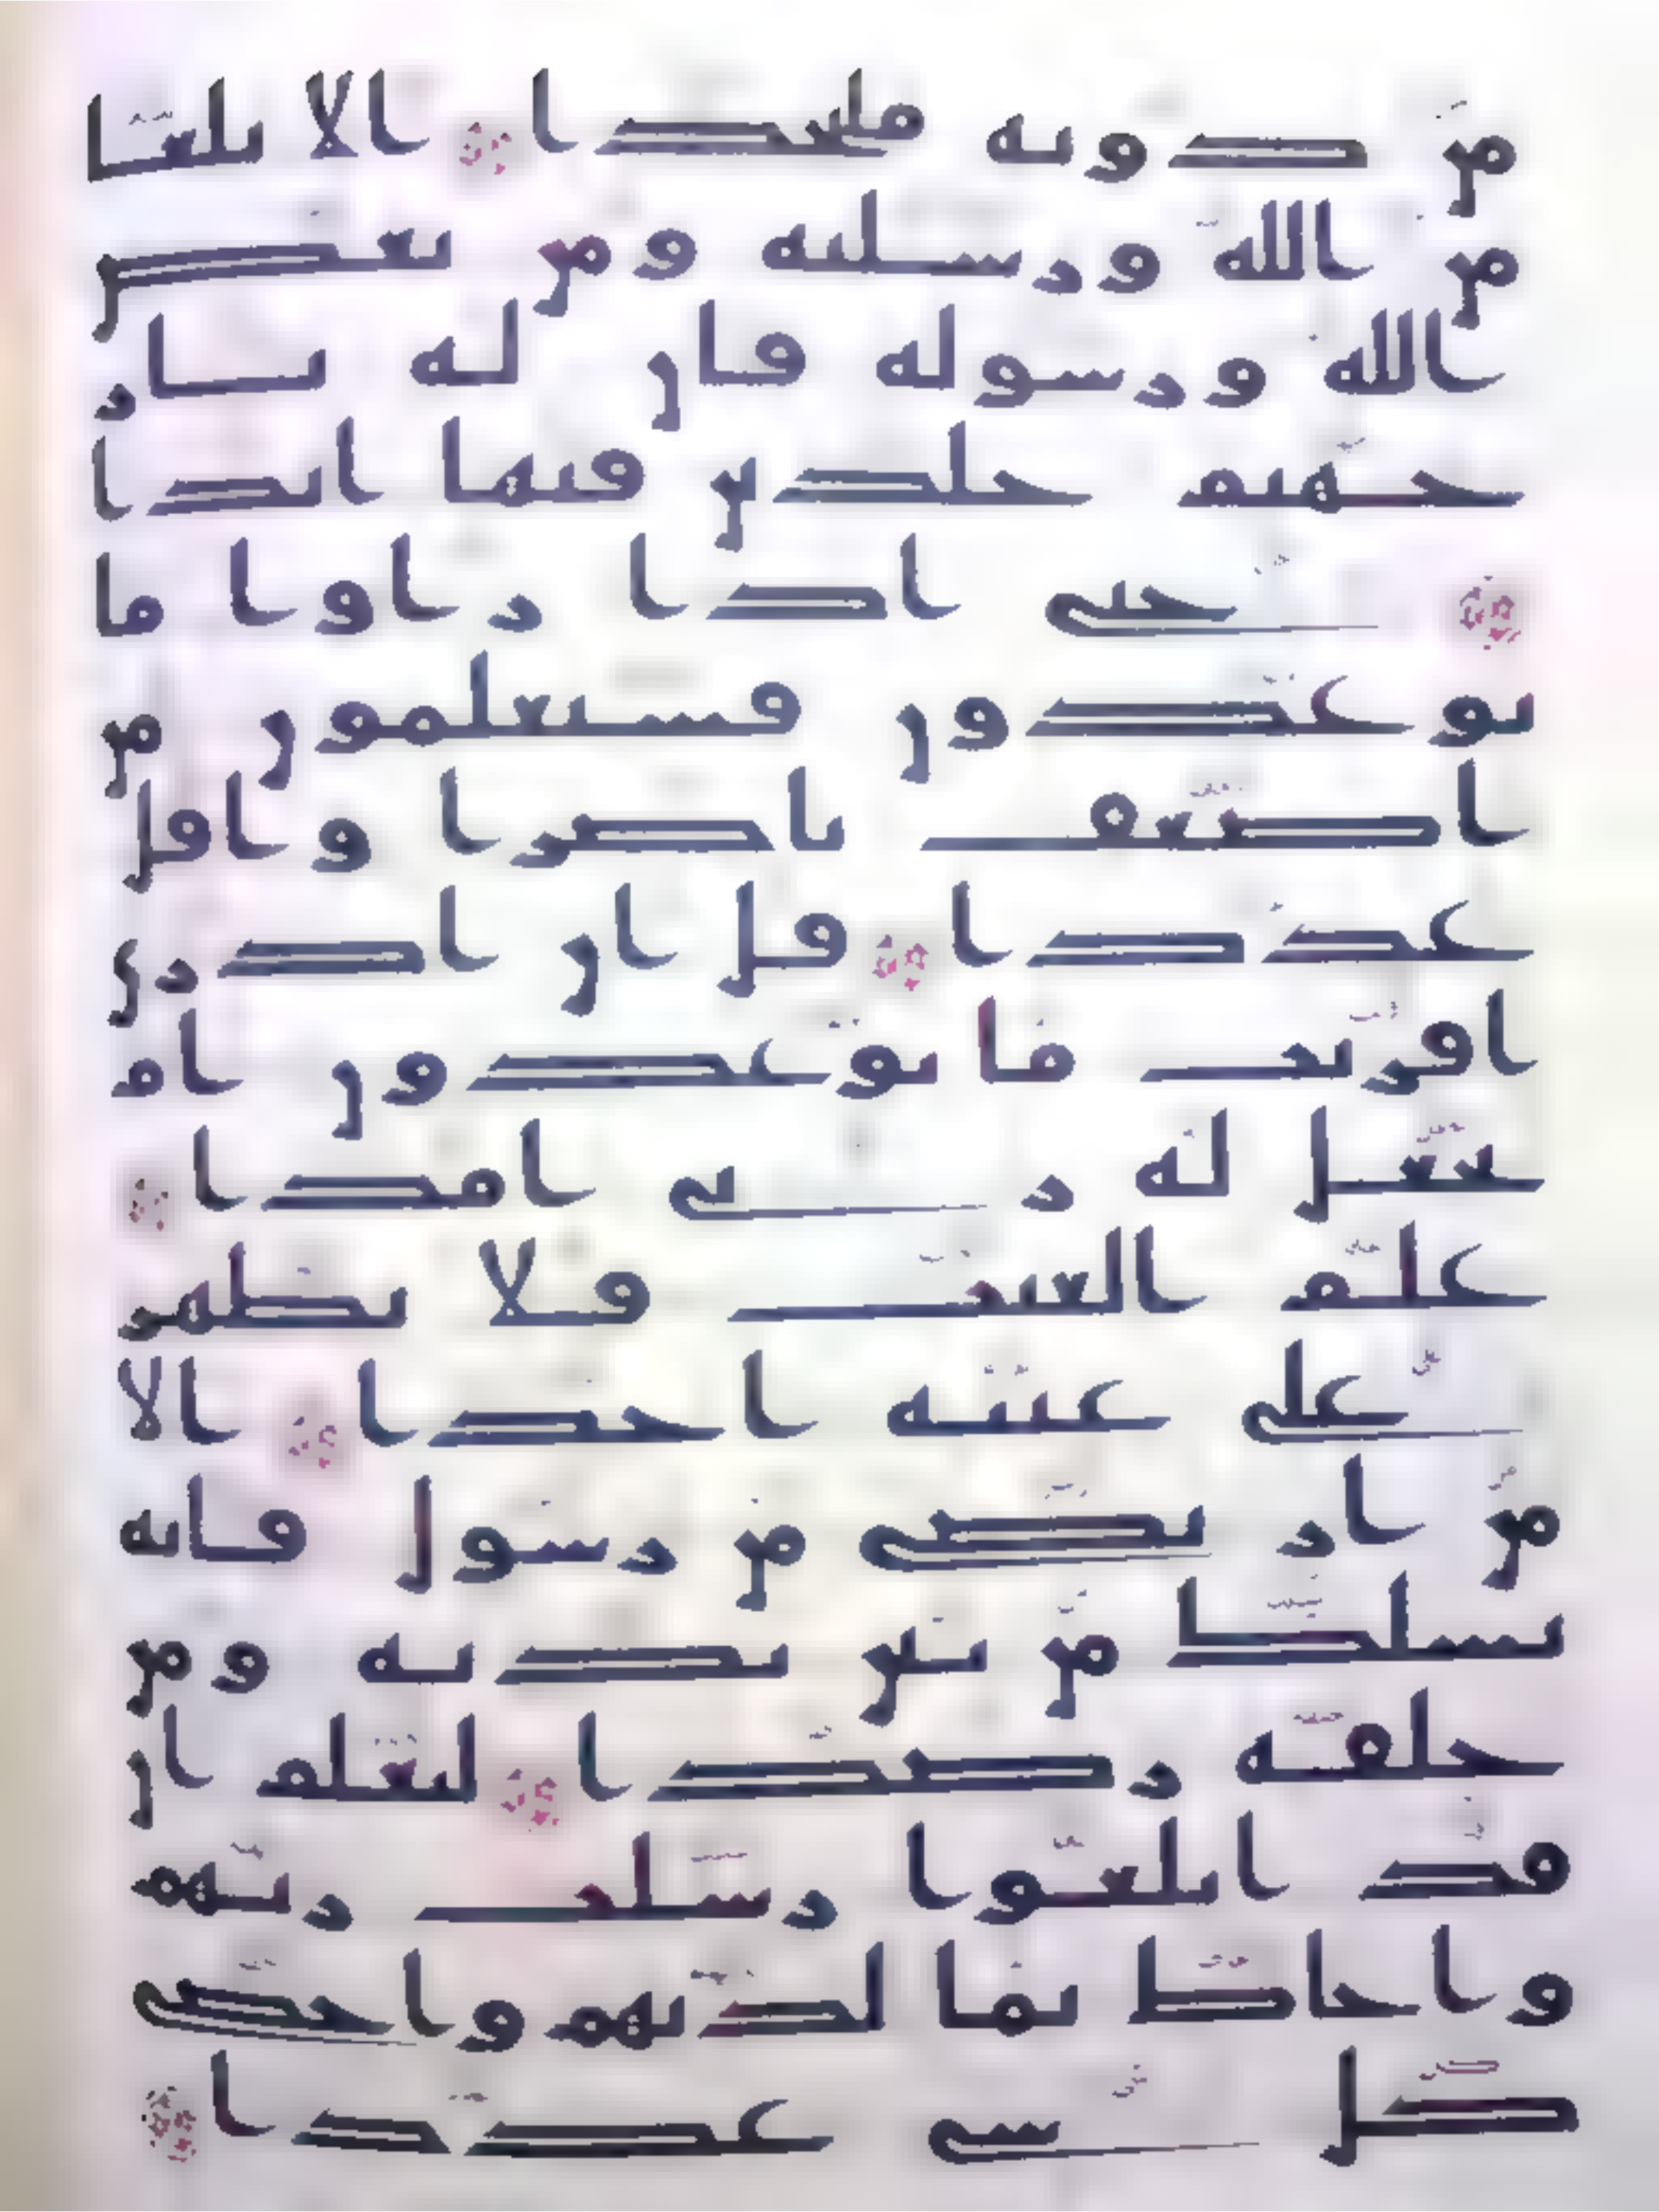 من دونه ملتحدا الا بلغا
من الله ورسلته ومن يعص
الله ورسوله فان له نار
جهنم خلدين فيها ابدا
حتى اذا راوا ما
يوعدون فسيعلمون من
اضعف ناصرا واقل
عددا قل ان ادري
اقريب ما توعدون ام
يجعل له ربي امدا
علم الغيب فلا يظهر
على غيبه احدا الا
من ارتضى من رسول فانه
يسلك من بين يديه ومن
خلفه رصدا ليعلم ان
قد ابلغوا رسلت ربهم
واحاط بما لديهم واحصى
كل شي عددا